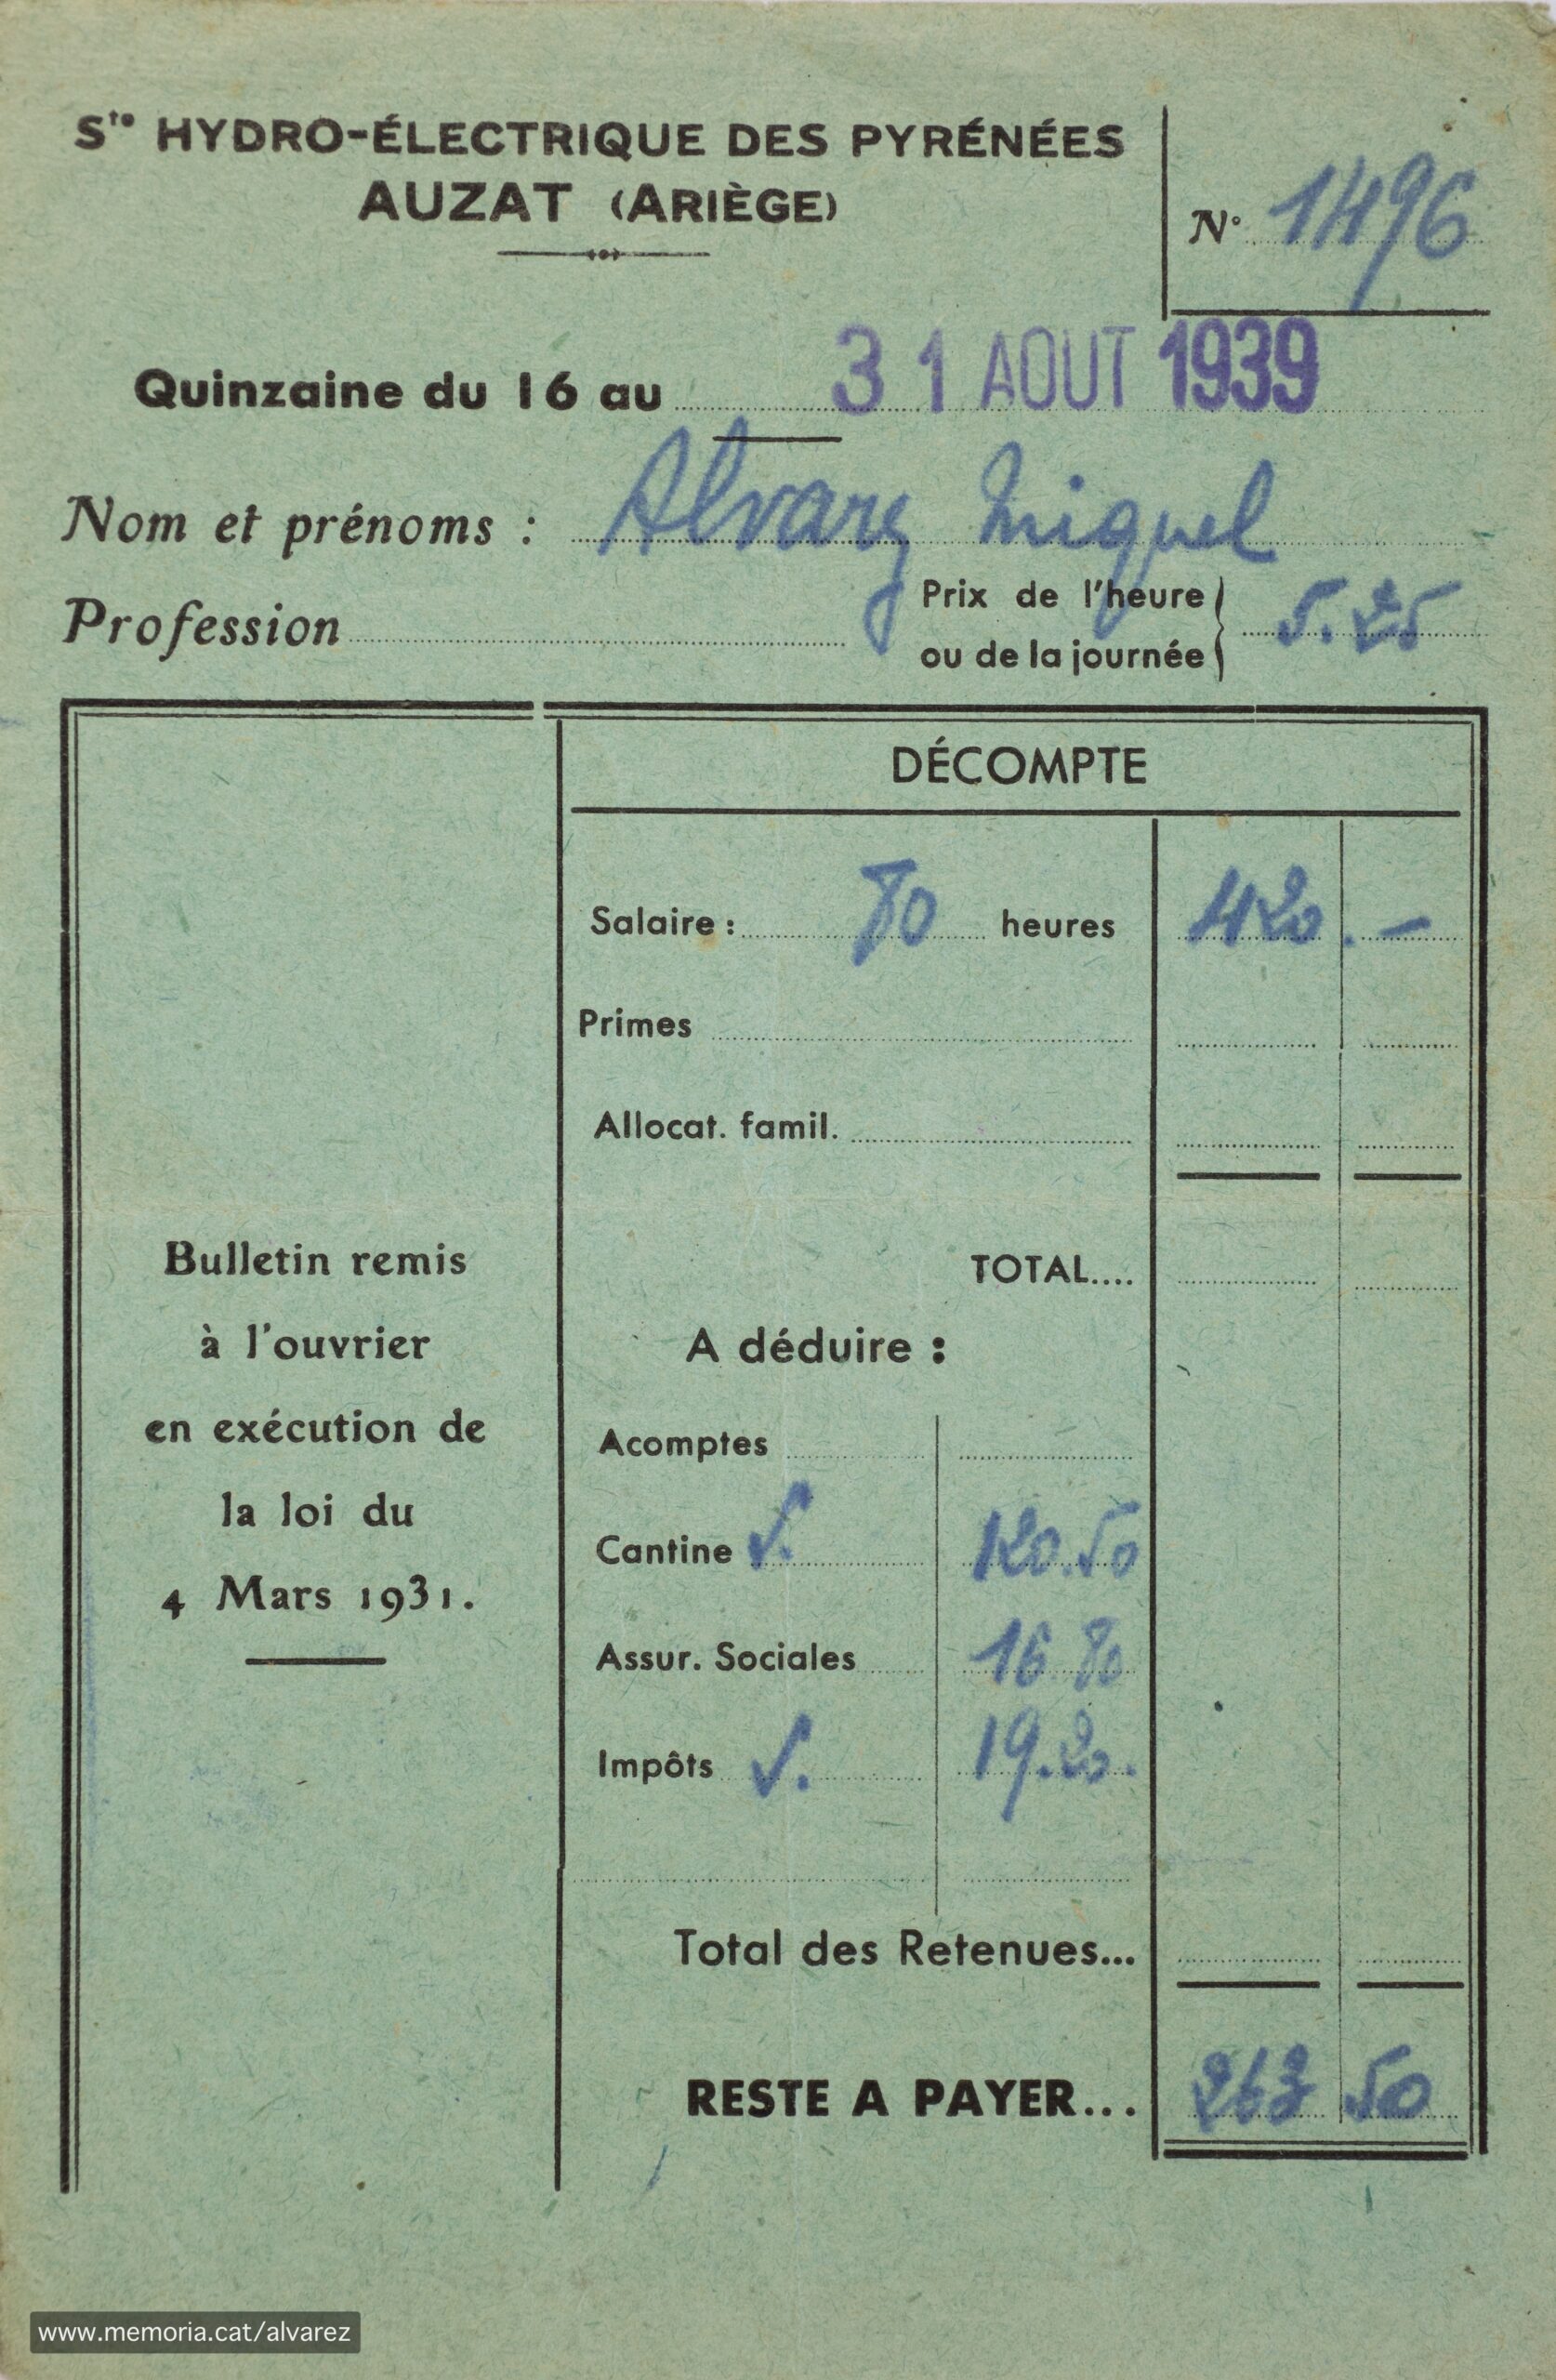 Sté HYDRO-ÉLECTRIQUE DES PYRÉNÉES
AUZAT (ARIÈGE)
N° 1496
Quinzaine du 16 au 31 AOUT 1939
Nom et prénoms : Alvarez Miquel
Profession
Prix de l'heure
ou de la journée
5.25
DÉCOMPTE
Salaire : 80 heures 420.-
Primes
Allocat. famil.
TOTAL....
A déduire :
Acomptes
Cantine 120.50
Assur. Sociales 16.80
Impôts 19.20.
Total des Retenues...
RESTE A PAYER... 263 50
Bulletin remis
à l'ouvrier
en exécution de
la loi du
4 Mars 1931.
www.memoria.cat/alvarez